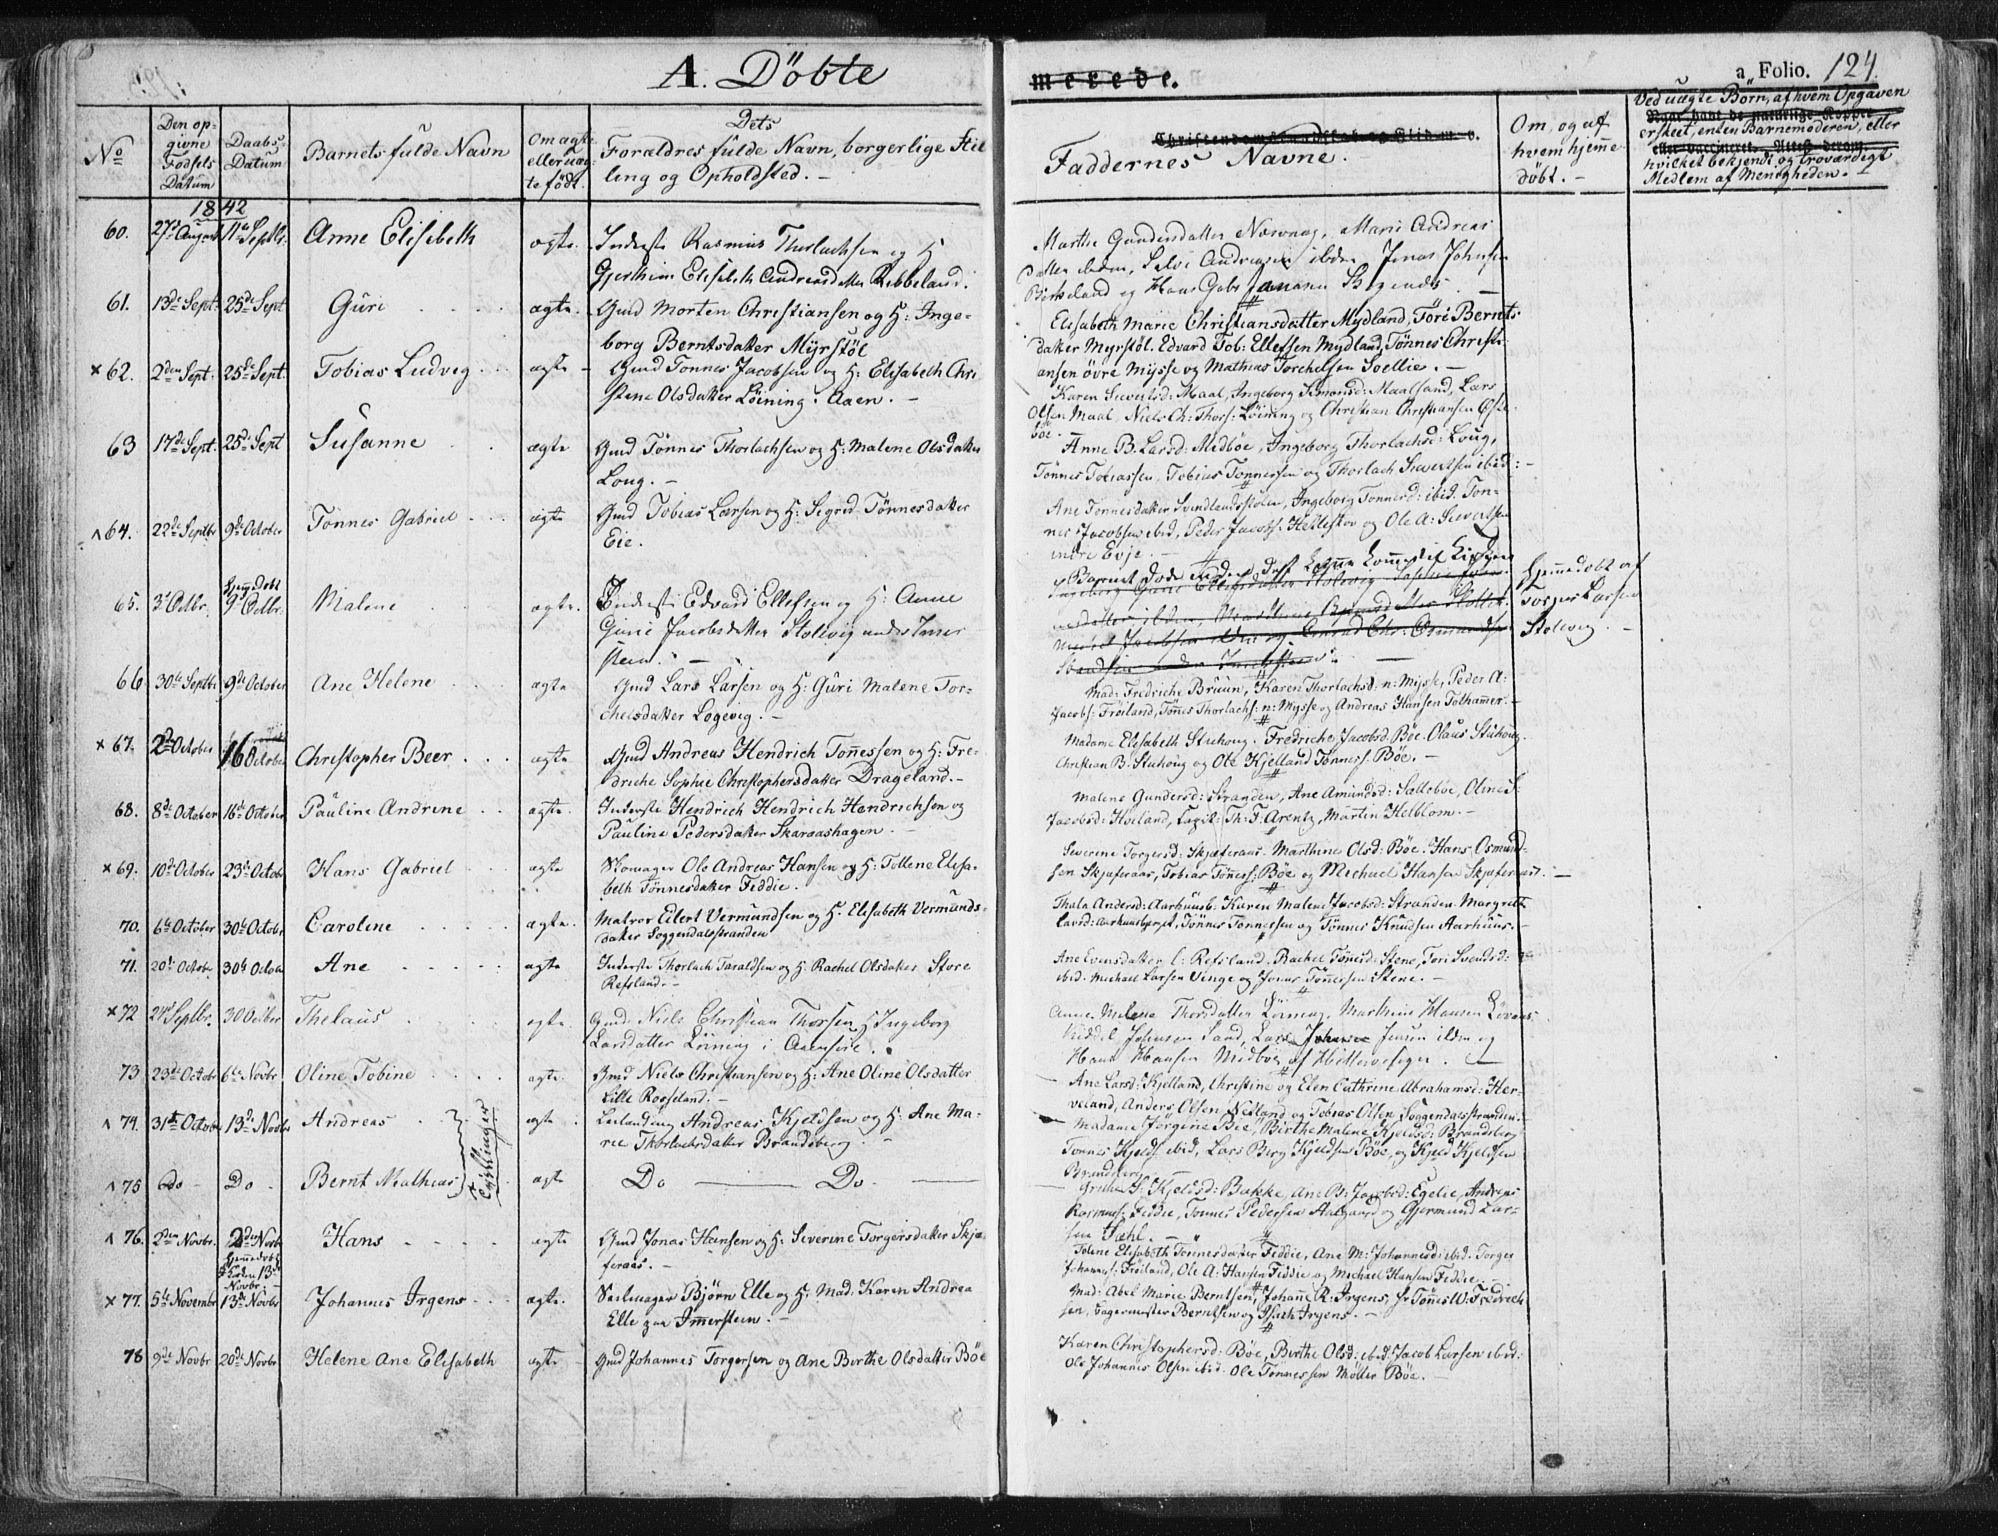 A. Döbte
merede.
a„ Folio. 124.
No
Den op-
givne
Födsels
Datum
Daabs
Datum
Barnets fulde Navn
Om ægte
eller uæg-
te födt.
Dets
Forældres fulde Navn, borgerlige Stil-
ling og Opholdsted. –
Faddernes Navne.
Om, og af
hvem hjemme
döbt. –
Ved uægte Börn, af hvem Opgaven
er skeet, enten Barnemoderen, eller
hvilket bekjendt og troværdigt
Medlem af Menigheden. –
1842
60. 27de August 11te Septbr. Anne Elisebeth ægte. Inderste Rasmus Thorlachsen og H
Elisebeth Andreasdatter Rebbeland.
Marthe Gundersdatter , Marie Andreas
datter ibiden, Andreasen ibiden Jonas Johnsen
Birkeland og Hans Gabr
61. 13de Sept. 25de Sept Guri ægte. Gmd Morten Christiansen og H: Inge-
borg Berntsdatter Myrstöl
Elisabeth Marie Christiansdatter Mydland, Töri Bernts
datter Myrstöl. Edvard Tob: Ellefsen Mydland, Tönnes Christi-
ansen övre Mysse og Mathias Torchelsen Soellie. –
× 62. 2den Sept. 25de Sept. Tobias Ludvig ægte – Gmd Tönnes Jacobsen og H: Elisabeth Chri
stene Olsdatter Löining. Aaen. –
Karen Sivertsd: Maal, Ingeborg Simonsd: Maalsand, Lars
Olsen Maal, Niels Ch: Thors: Löining og Christian Christiansen Öste-
böe. –
63 17de Sept. 25de Sept Susanne ægte Gmd Tönnes Thorlachsen og H: Malene Olsdatter
Loug. –
Anne B. Larsd: Midböe, Ingeborg Thorlachsd: Loug,
Tönnes Tobiassen, Tobias Tönnessen og Thorlach Sivertsen ibid: –
^ 64. 22de Septbr 9de October Tönnes Gabriel ægte Gmd Tobias Larsen og H: Sigrid Tönnesdatter
Eie.
Ane Tönnesdatter Svindlandsstölen, Ingeborg Tönnesd: ibid. Tön-
nes Jacobsen ibid, Peder Jacobs: Helleskov og Ole A: Sivertsen
indre Evje. –
65. 3de Octbr. Hjemdöbt 9de Octbr. Malene ægte. Inderste Edvard Ellefsen og H: Anne
Gurie Jacobsdatter Stolevig under Immer
steen. –
Barnet döde inden det kunne komme til Kirken
Hjemmedöbt af
Torger Larsen
Stolevig. –
66 30te Septbr 9de October Ane Helene ægte Gmd Lars Larsen og H: Guri Malene Tor-
chelsdatter Logevig. –
Mad: Fredriche Bruun, Karen Thorlachsd: n: Mysse, Peder A:
Jacobs: Fröiland, Tönnes Thorlachs: n: Mysse og Andreas Hansen Tothamer. –
× 67. 2de October 16 October Christopher Beer ægte Gmd Andreas Hendrich Tönnessen og H: Fre-
driche Sophie Christophersdatter Drageland. –
Madame Elisabeth Stuhoug. Fredriche Jacobsd. Böe. Olaus Stuhoug.
Christian B: Stuhoug og Ole Kjelland Tönness: Böe. –
68. 8de October 16de October Pauline Andrine ægte. Inderste Hendrich Hendrich Hendrichsen og
Pauline Pedersdatter Skaroashagen. –
Malene Gundersd: Stranden, Ane Amundsd: Sætteböe, Oline S:
Jacobsd: Hoeland, Th: F: Arentz, Martin Helblom. –
× 69. 10de October 23de Octobr Hans Gabriel ægte Skomager Ole Andreas Hansen og H: Tollene Elisa-
beth Tönnesdatter Feddie.
Severine Torgersd: Skjæferaas. Marthine Olsd: Böe. Hans Osmund-
sen Skjæferaas, Tobias Tönness: Böe og Michael Hansen Skjæferaas. –
70. 6te October 30te Octobr Caroline ægte. Matros Eilert Vermundsen og H. Elisabeth Vermunds-
datter Soggendalsstranden
Thala Andersd: Aarhuusb: Karen Malene Jacobsd: Stranden. Margrethe
Larsd: Aarhuusberget, Tönnes Tönnessen og Tönnes Knudsen Aarhuus. –
71. 20de Octobr 30te Octobr Ane ægte Inderste Thorlach Taraldsen og H: Rachel Olsdatter Store
Refsland. –
Ane Evensdatter l: Refsland. Rachel Tönnesd: Stene, Tori Svendsd:
ibid: Michael Larsen Vinge og Jonas Tönnessen Stene. –
× 72 24de Septbr. 30 Octber Thelaus ægte. Gmd: Niels Christian Thorsen H Ingeborg
Larsdatter Löining i Aaensire.
Anne Malene Thorsdatter Löining, Marthine Hansen
Johnsen Sand, Lars Jensen ibidem og
Hans Hansen Midböe af Hitteröesogn. –
73 23de Octobr 6te Novbr Oline Tobine ægte. Gmd Niels Christiansen og H: Ane Oline Olsdatter
Lille Rosseland. –
Ane Larsd: Kjelland, Christine og Elen Cathrine Abrahamsd: Her-
veland, Anders Olsen Nedland og Tobias Olsen Soggendalsstranden. –
^ 74. 31te Octobr 13de Novbr Andreas ægte Leilænding Andreas Kjeldsen og H: Ane Ma-
rie Thorlachsdatter Brandsberg. –
Tvillinger
Madame Jörgine Bie, Birthe Malene Kjeldsd: Brandsberg
Tönnes Kjelds: ibid, Lars Berg Kjeldsen Böe, og Kjeld Kjeldsen
Brandsberg
^ 75 Do – Do – Bernt Mathias ægte Do – Do. –
Grethe S: Kjeldsd: Bakke, Ane B: Jacobsd: Egelie, Andreas
Rasmus: Feddie, Tönnes Pedersen Aalgaard og Gjermund Lar-
sen Fæhl. –
^ 76. 2den Novbr. 2den Novbr
hjemmedöbt
i Kirken 13de
Novbr. – Hans ægte Gmd Jonas Hansen og H: Severine Torgersdatter Skjæ-
feraas. –
Tolene Elisabeth Tönnesdatter Feddie, Ane M: Johannesd: ibid. Torger
Johannes: Fröiland, Ole A: Hansen Feddie og Michael Hansen Feddie. –
× 77. 5te November 13de Novbr Johannes Irgens ægte. Seilmager Björn Elle og H: Mad: Karen Andrea
Elle paa Immersteen. –
Mad: Abel Marie Berntsen, Johane R: Irgens, Hr Tönnes W: Fredrich
sen, Berntsen og Isach Irgens. –
78 9de Novbr 20de Novbr Helene Ane Elisabeth ægte – Gmd Johannes Torgersen og Ane Birthe Olsdatter Böe
Karen Christophersd: Böe, Birthe Olsd: ibid. Jacob Larsen ibid:
Ole Johannes Olsen ibid. Ole Tönnessen Möller Böe. –